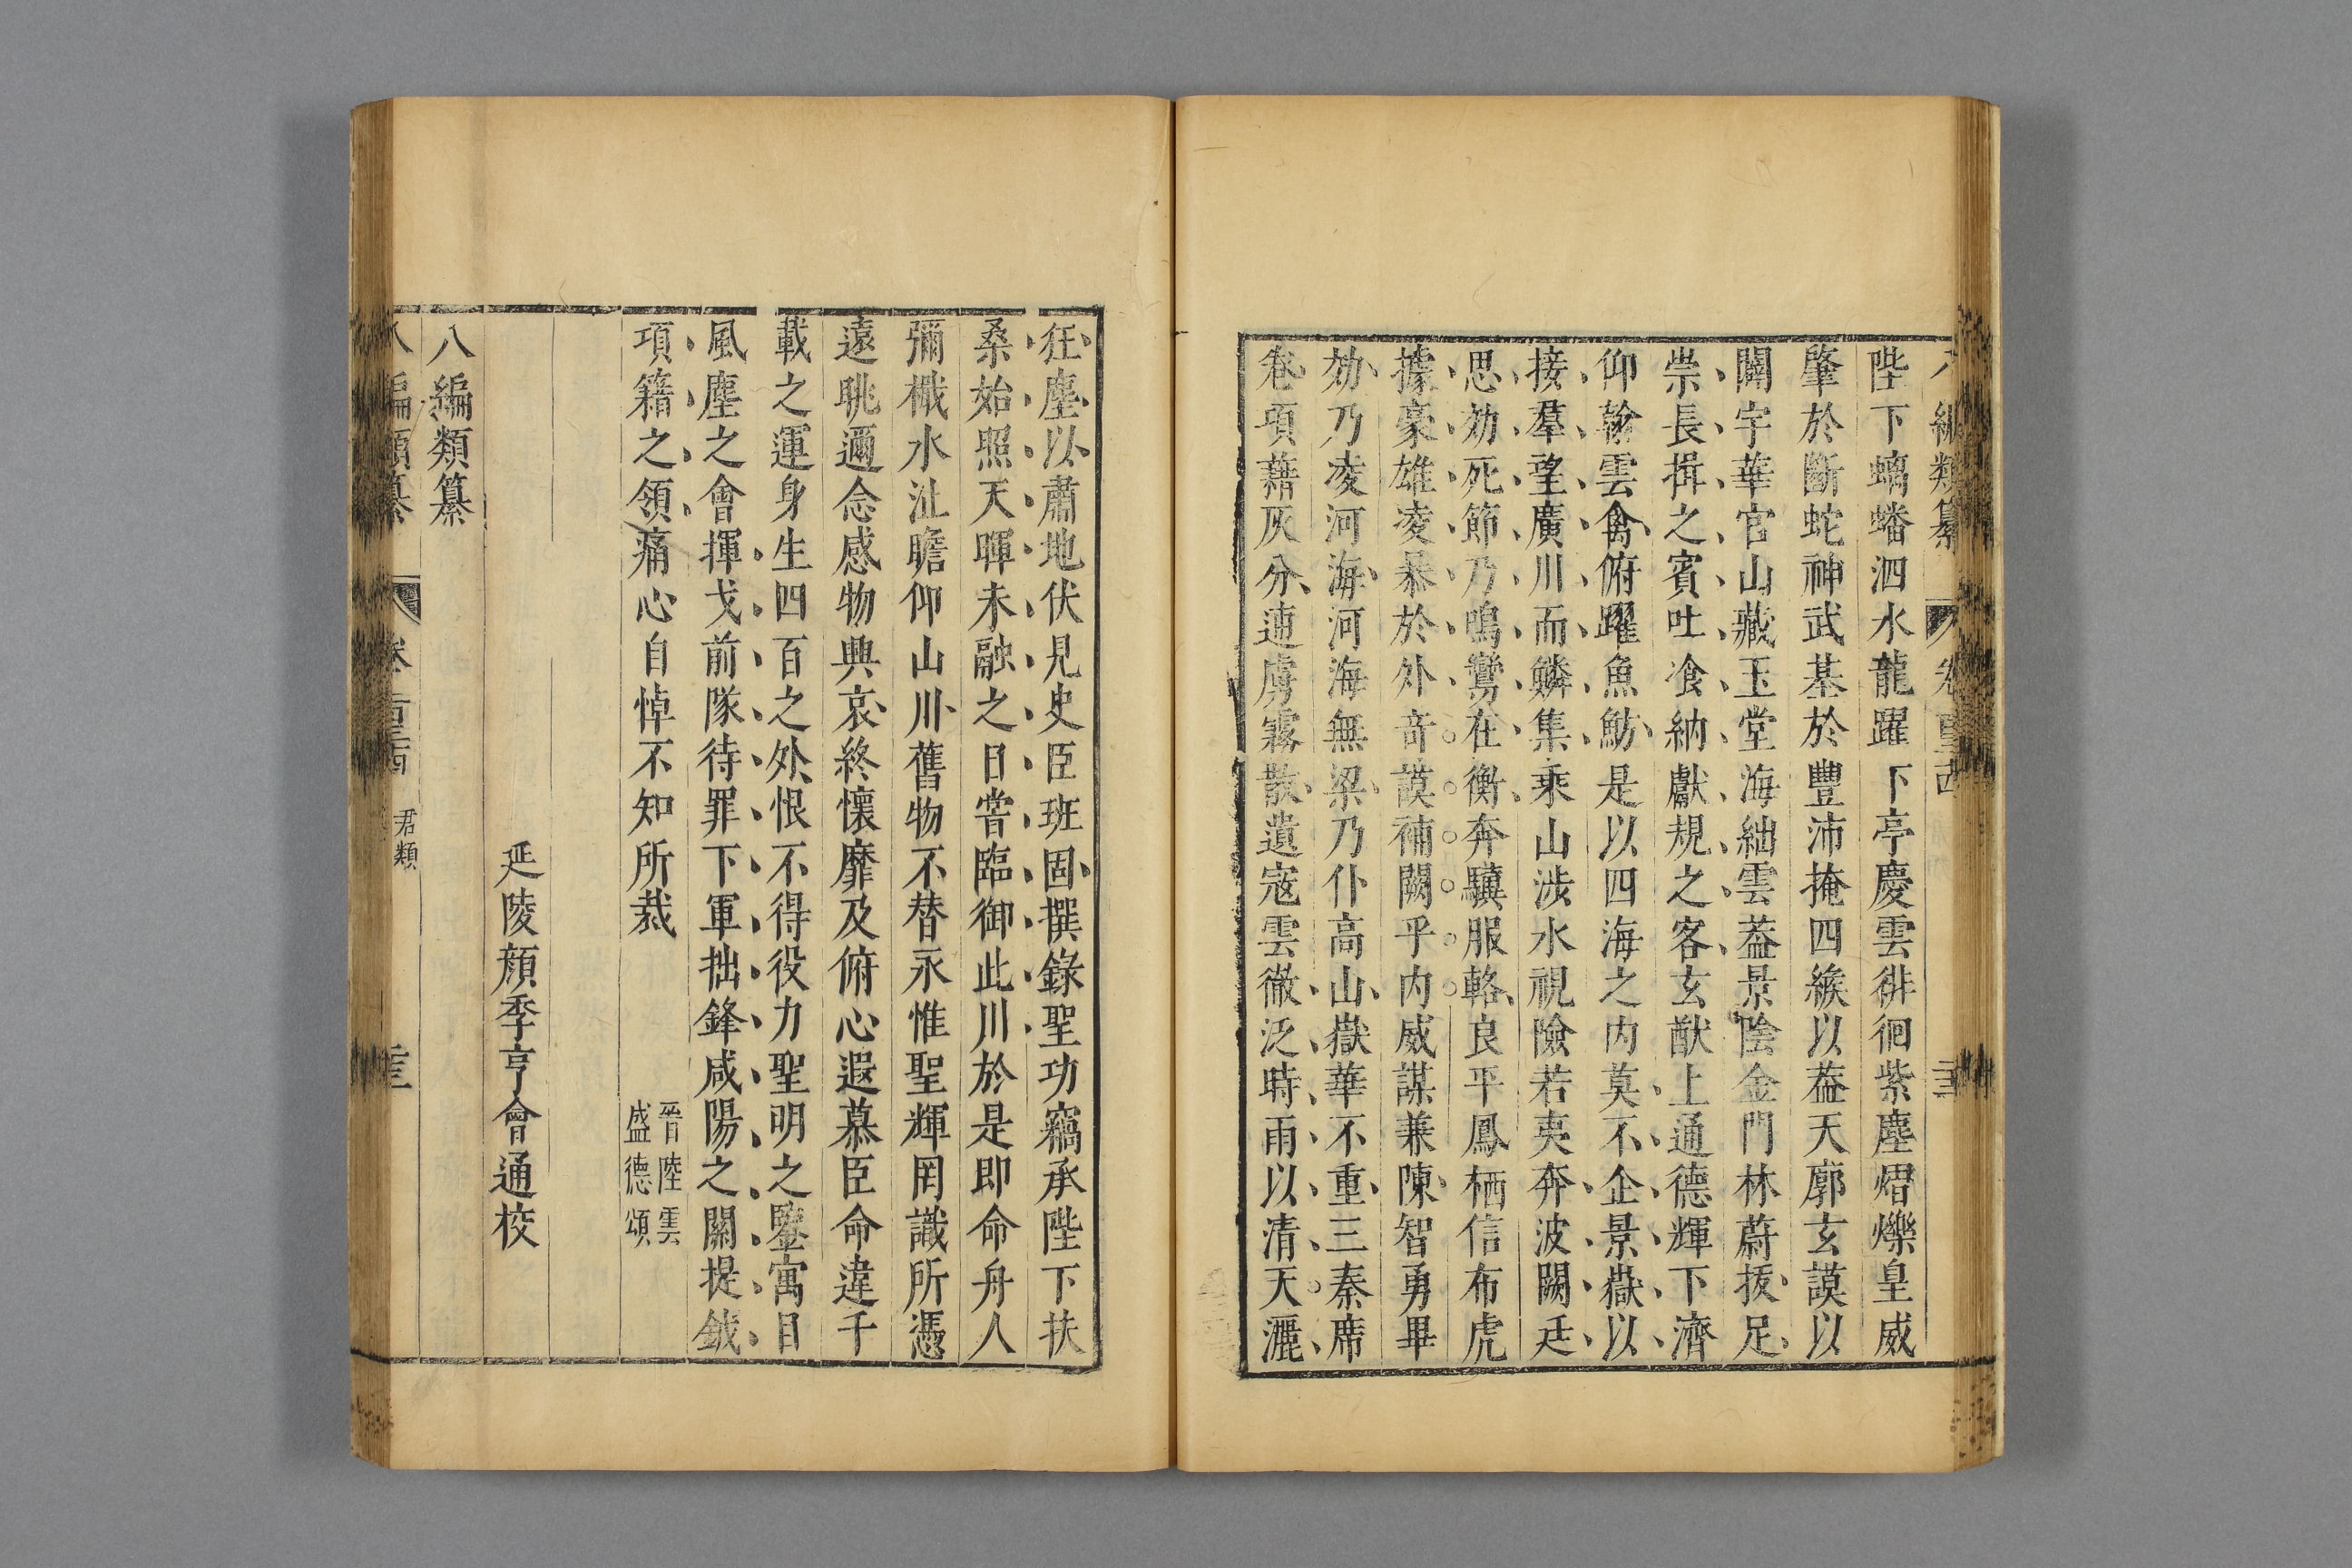 陛下螭蟠泗水龍躍下亭慶雲徘徊紫塵熠爍皇威
肇於斷蛇神武基於豐沛掩四緱以葢天廓玄謨以
闢宇華官山藏玉堂海絀雲葢景陰金門林蔚拔足
崇長揖之賓吐飡納獻規之客玄猷上通德輝下濟
仰翰雲禽俯躍魚魴是以四海之内莫不企景嶽以
接羣望廣川而鱗集乘山涉水視險若夷奔波闕廷
思効死節乃鳴鸞在衡奔驥服輅良平鳳栖信布虎
據豪雄凌㬥於外竒謨補闕乎内威謀兼陳智勇畢
効乃凌河海河海無梁乃仆高山嶽華不重三秦席
卷項藉灰分逋虜霧散遺寇雲徹泛時雨以清天灑
狂塵以肅地伏見史臣班固撰錄聖功竊承陛下扶
桑始照天暉未融之日嘗臨御此川於是即命舟人
彌檝水沚瞻仰山川舊物不替永惟聖輝罔識所憑
遠眺邇念感物興哀終懷靡及俯心遐慕臣命違千
載之運身生四百之外恨不得役力聖明之鑒寓目
風塵之會揮戈前隊待罪下軍拙鋒咸陽之關提鉞
項籍之領痛心自悼不知所裁
晉陸雲
盛德頌
延陵顏季亨會通校
八編類纂
八編類纂
君類